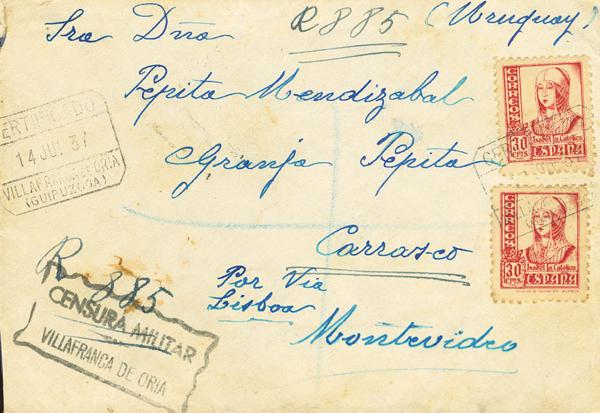 Sra Dña R 885 (Uruguay)
Pepita Mendizabal
Granja Pepita
Carrasco
Por Via
Lisboa
Montevideo
R 885
CERTIFICADO
14 JUL 37
VILLAFRANCA DE ORIA
(GUIPUZCOA)
CENSURA MILITAR
VILLAFRANCA DE ORIA
CORREOS
30 CTS.
Isabel la Católica
ESPAÑA
CORREOS
30 CTS.
Isabel la Católica
ESPAÑA